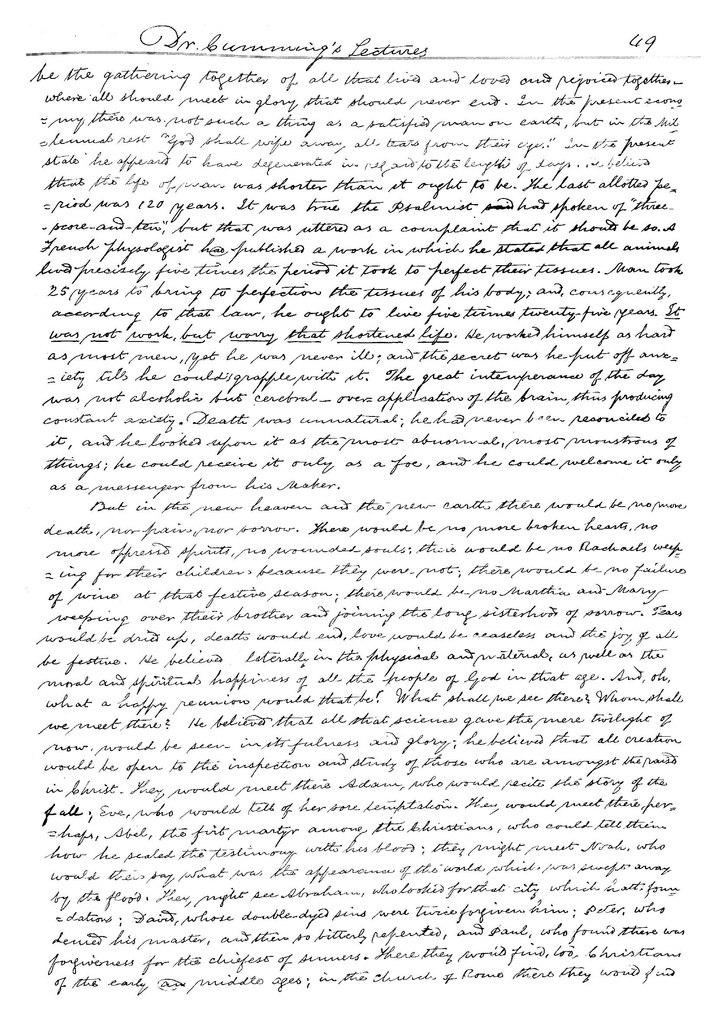 Dr. Cumming's Lectures 49
be the gathering together of all that lived and loved and rejoiced together—
where all should meet in glory that should never end. In the present econo
=my there was not such a thing as a satisfied man on earth, but in the Mil
=lennial rest "God shall wipe away all tears from their eyes." In the present
state he appeared to have degenerated in regard to the length of days. He believed
that the life of man was shorter than it ought to be. The last allotted pe=
=riod was 120 years. It was true the Psalmist said had spoken of "three-
-score-and-ten", but that was uttered as a complaint that it should be so. A
French physiologist had published a work in which he stated that all animals
lived precisely five times the period it took to perfect their tissues. Man took
25 years to bring to perfection the tissues of his body; and, consequently,
according to that law, he ought to live five times twenty-five years. It
was not work, but worry that shortened life. He worked himself as hard
as most men, yet he was never ill; and the secret was he put off anx=
=iety till he could grapple with it. The great intemperance of the day
was not alcoholic but cerebral — over-application of the brain, thus producing
constant axiety. Death was unnatural; he had never been reconciled to
it, and he looked upon it as the most abnormal, most monstrous of
things; he could receive it only as a foe, and he could welcome it only
as a messenger from his Maker.
But in the new heaven and the new earth there would be no more
death, nor pain, nor sorrow. There would be no more broken hearts, no
more oppressed spirits, no wounded souls; there would be no Rachaels weep
=ing for their children because they were not; there would be no failure
of wine at that festive season; there would be no Martha and Mary
weeping over their brother and joining the long sisterhood of sorrow. Tears
would be dried up, death would end, love would be ceaseless and the joy of all
be festive. He believed literally in the physical and material, as well as the
moral and spiritual happiness of all the people of God in that age. And, oh,
what a happy reunion would that be! What shall we see there? Whom shall
we meet there? He believed that all that science gave the mere twilight of
now, would be seen in its fulness and glory; he believed that all creation
would be open to the inspection and study of those who are amongst the raised
in Christ. They would meet there Adam, who would recite the story of the
fall; Eve, who would tell of her sore temptation. They would meet there, per=
=haps, Abel, the first martyr among the Christians, who could tell them
how he sealed the testimony with his blood; they might meet Noah, who
would then say what was the appearance of the world which was swept away
by the flood. They might see Abraham, who looked for that city which hath foun
=dations; David, whose double-dyed sins were twice forgiven him; Peter, who
denied his master, and then so bitterly repented, and Paul, who found there was
forgiveness for the chiefest of sinners. There they would find, too, Christians
of the early and middle ages; in the church of Rome there they would find